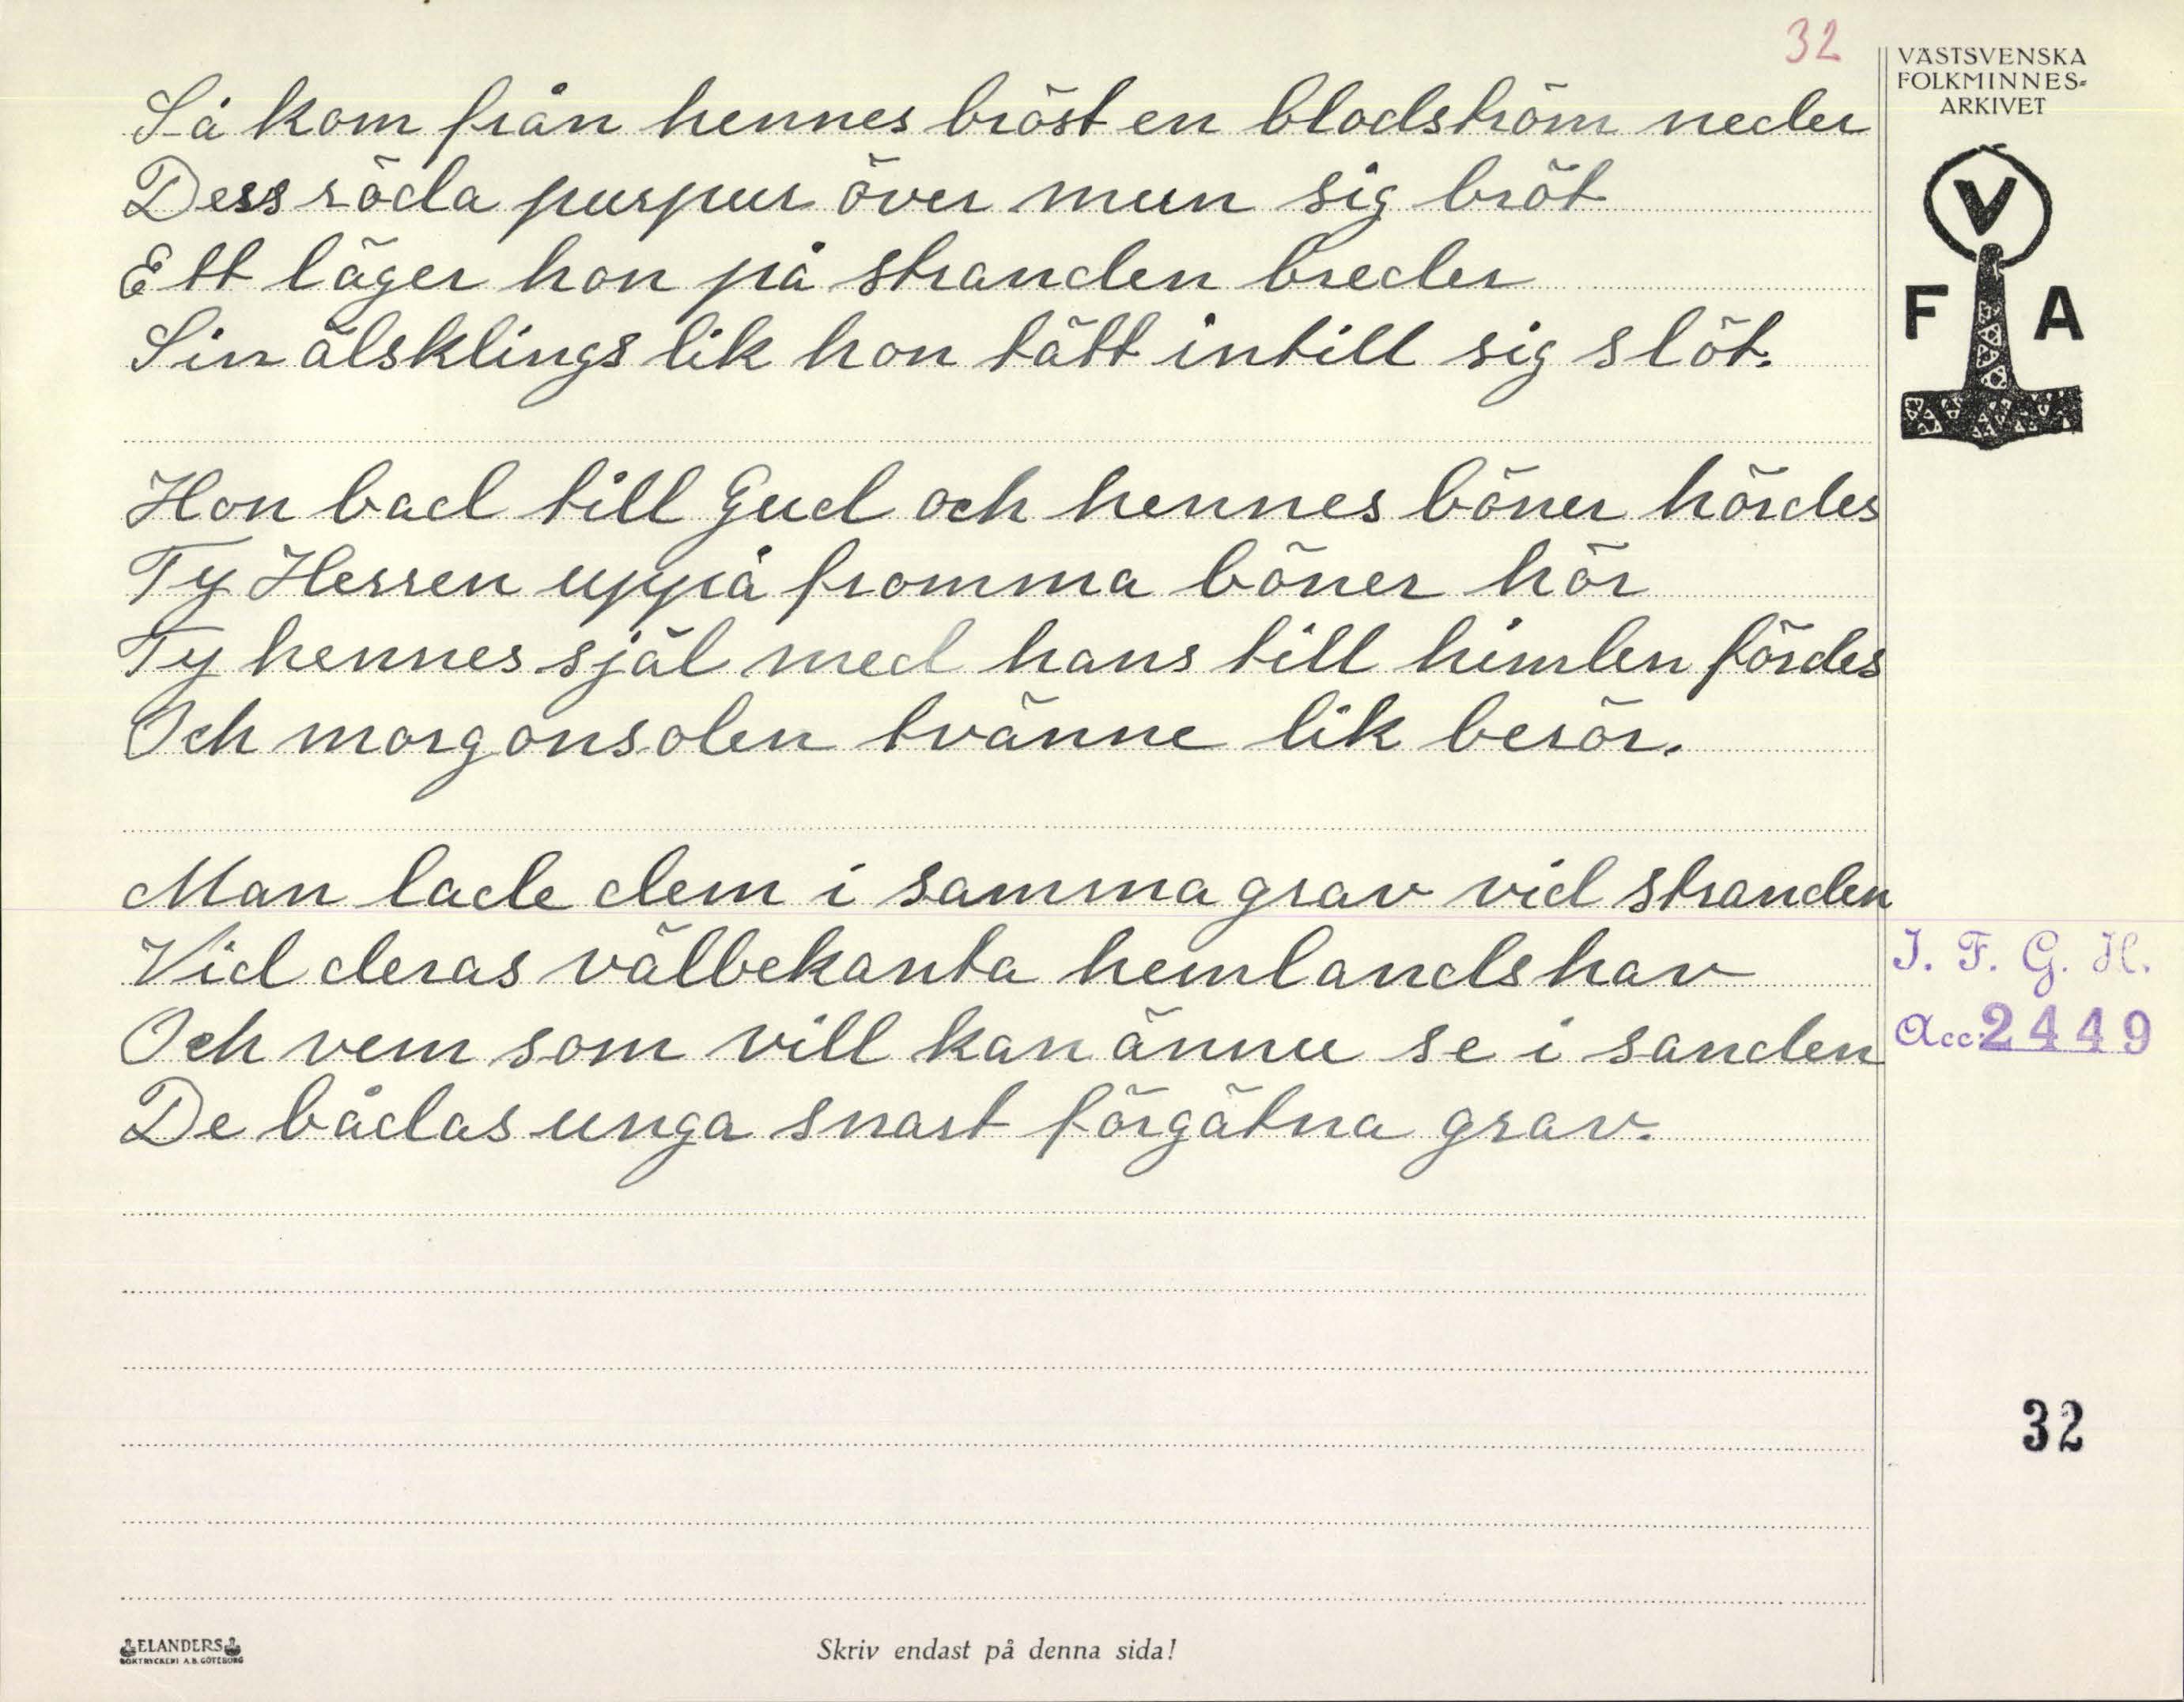 32
VÄSTSVENSKA
FOLKMINNES-
ARKIVET
V
F A
Så kom från hennes bröst en blodström neder
Dess röda purpur över mun sig bröt
Ett läger hon på stranden breder
Sin älsklings lik hon tätt intill sig slöt.
Hon bad till Gud och hennes böner hördes
Ty Herren uppå fromma böner hör
Ty hennes själ med hans till himlen fördes
Och morgonsolen tvänne lik berör.
Man lade dem i samma grav vid stranden
Vid deras välbekanta hemlandshav
Och vem som vill kan ännu se i sanden
De bådas unga snart förgätna grav.
I. F. G. H.
Acc: 2449
32
ELANDERS
BOKTRYCKERI A.B. GÖTEBORG
Skriv endast på denna sida!